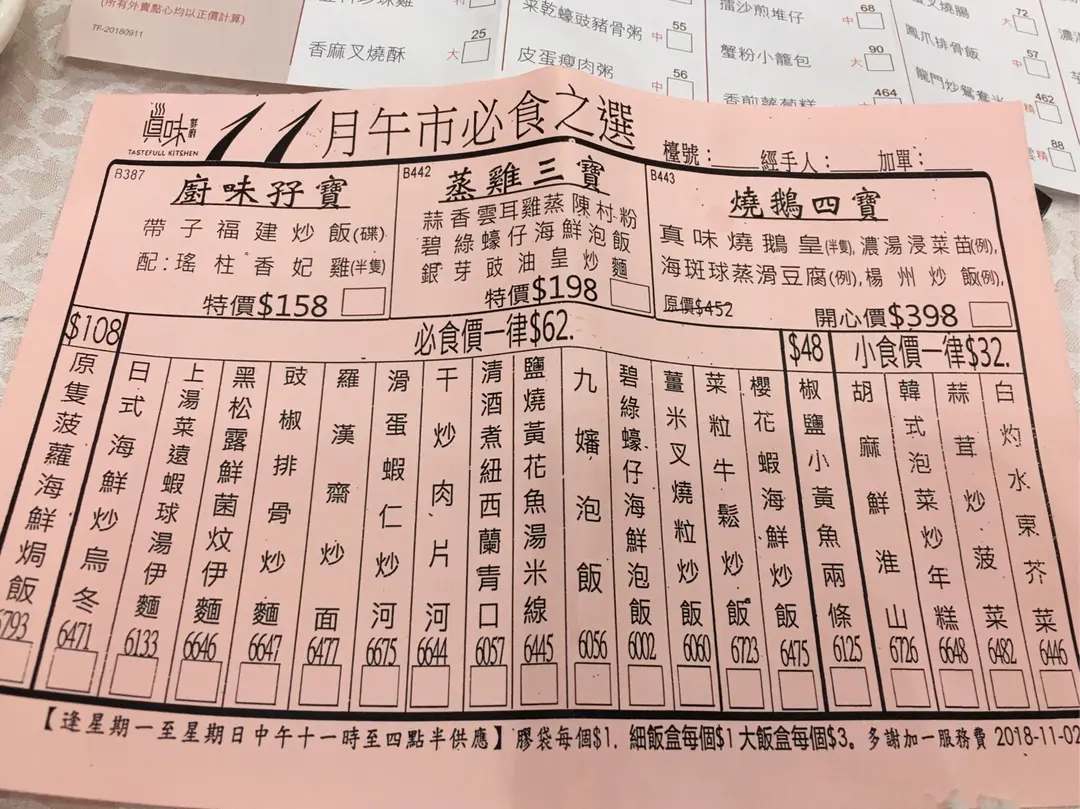 (所有外賣點心均以正價計算)
TF-20180911
香麻叉燒酥
大
25
采乾蠔豉豬骨粥
中
55
皮蛋瘦肉粥
中
56
擂沙煎堆仔
中
68
蟹粉小籠包
大
90
464
叉燒腸
大
72
鳳爪排骨飯
中
57
龍門炒鴛鴦米
精
462
精
88
眞味
TASTEFULL KITSHEN
11月午市必食之選
檯號：
經手人：
加單：
B387
廚味孖寶
帶子福建炒飯(碟)
配:瑤柱香妃雞(半隻)
特價$158
B442
蒸雞三寶
蒜香雲耳雞蒸陳村粉
碧綠蠔仔海鮮泡飯
銀芽豉油皇炒麵
特價$198
B443
燒鵝四寶
真味燒鵝皇(半隻),濃湯浸菜苗(例),
海斑球蒸滑豆腐(例),楊州炒飯(例),
原價$452
開心價$398
$108
必食價一律$62.
$48
小食價一律$32.
原隻菠蘿海鮮焗飯
6793
日式海鮮炒烏冬
6471
上湯菜遠蝦球湯伊麵
6133
黑松露鮮菌炆伊麵
6646
豉椒排骨炒麵
6647
羅漢齋炒面
6477
滑蛋蝦仁炒河
6675
干炒肉片河
6644
清酒煮紐西蘭青口
6057
鹽燒黃花魚湯米線
6445
九嬸泡飯
6056
碧綠蠔仔海鮮泡飯
6002
薑米叉燒粒炒飯
6060
菜粒牛鬆炒飯
6723
櫻花蝦海鮮炒飯
6475
椒鹽小黃魚兩條
6125
胡麻鮮淮山
6726
韓式泡菜炒年糕
6648
蒜茸炒菠菜
6482
白灼水東芥菜
6446
【逢星期一至星期日中午十一時至四點半供應】膠袋每個$1. 細飯盒每個$1 大飯盒每個$3。多謝加一服務費 2018-11-02